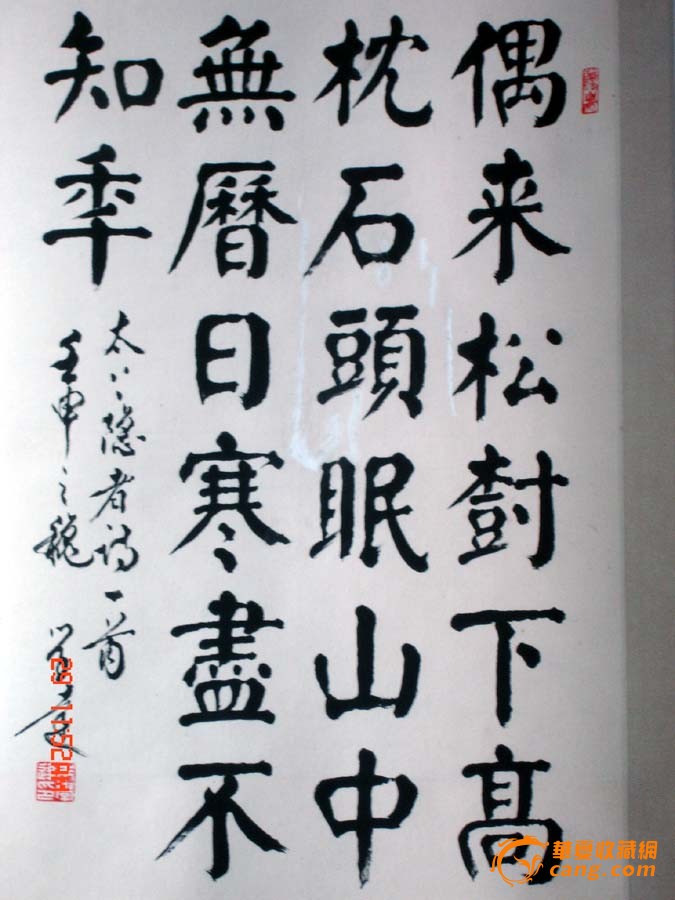 偶来松樹下高
枕石頭眠山中
無曆日寒盡不
知秊
太上隐者诗一首
壬申之穐
華夏收藏網
cang.com